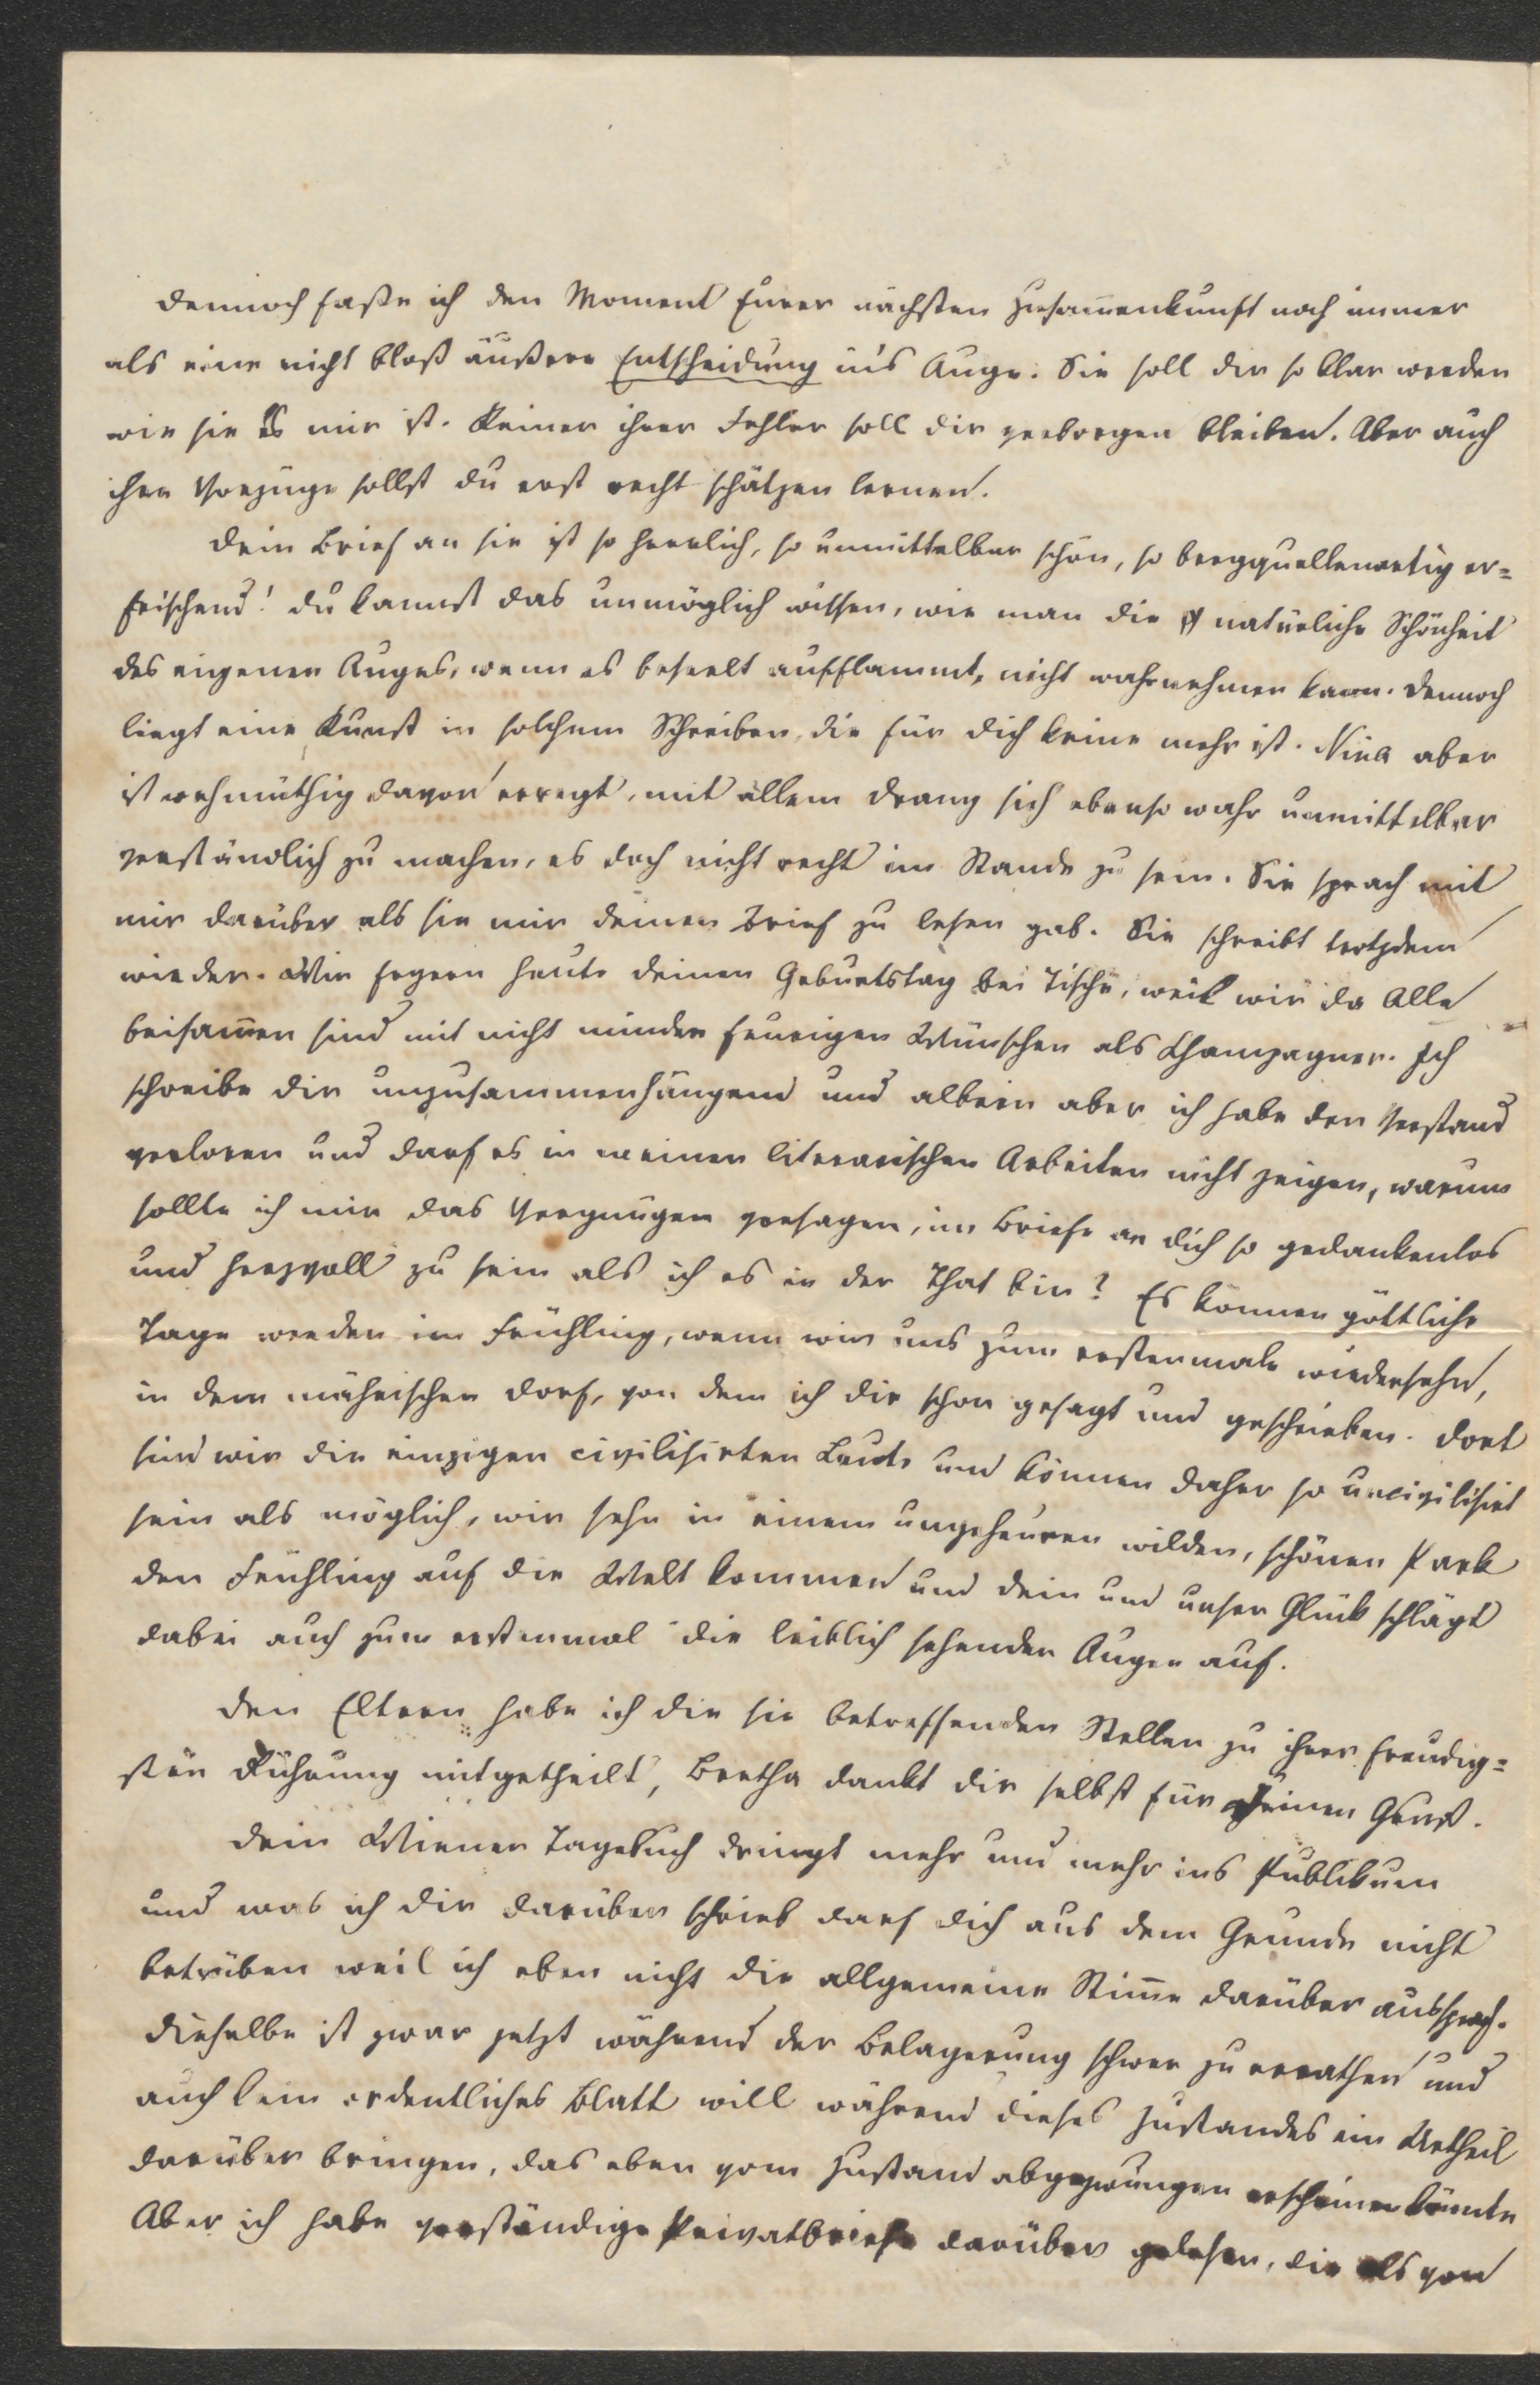 Dennoch faße ich den Moment Eurer nächsten Zusam̄enkunft noch immer
als eine nicht bloß äußere Entscheidung in's Auge. Sie soll dir so klar werden
wie sie es mir ist. Keiner ihrer Fehler soll dir verborgen bleiben. Aber auch
ihre Vorzüge sollst du erst recht schätzen lernen.
Dein Brief an sie ist so herrlich, so unmittelbar schön, so bergquellenartig er=
frischend! Du kannst das unmöglich wissen, wie man die natürliche Schönheit
des eigenen Auges, wenn es beseelt aufflammt, nicht wahrnehmen kann. Dennoch
liegt eine Kunst in solchem Schreiben, die für dich keine mehr ist. Nina aber
ist wehmüthig davon erregt, mit allem Drang sich ebenso wahr unmittelbar
verständlich zu machen, es doch nicht recht im Stande zu sein. Sie sprach mit
mir darüber als sie mir deinen Brief zu lesen gab. Sie schreibt trotzdem
wieder. Wir feyern heute deinen Geburtstag bei Tische, weil wir da Alle
beisam̄en sind mit nicht minder feurigen Wünschen als Champagner. Ich
schreibe dir unzusammenhängend und albern aber ich habe den Verstand
verloren und darf es in meinen literarischen Arbeiten nicht zeigen, warum
sollte ich mir das Vergnügen versagen, im Briefe an dich so gedankenlos
und herzvoll zu sein als ich es in der That bin? Es können göttliche
Tage werden im Frühling, wenn wir uns zum erstenmale wiedersehn,
in dem mährischen Dorf, von dem ich dir schon gesagt und geschrieben. Dort
sind wir die einzigen civilisirten Leute und können daher so uncivilisirt
sein als möglich, wir sehn in einem ungeheuren wilden, schönen Park
den Frühling auf die Welt kommen und dein und unser Glück schlägt
dabei auch zum erstenmal die leiblich sehenden Augen auf.
Den Eltern habe ich die sie betreffenden Stellen zu ihrer freudig=
sten Rührung mitgetheilt, Bertha dankt dir selbst für deinen Gruß.
Dein Wiener Tagebuch dringt mehr und mehr ins Publikum
und was ich dir darüber schrieb darf dich aus dem Grunde nicht
betrüben weil ich eben nicht die allgemeine Stim̄e darüber aussprach.
Dieselbe ist zwar jetzt während der Belagerung schwer zu errathen und
auch kein ordentliches Blatt will während dieses Zustandes ein Urtheil
darüber bringen, das eben vom Zustand abgezwungen erscheinen könnte
Aber ich habe verständige Privatbriefe darüber gelesen, die als von